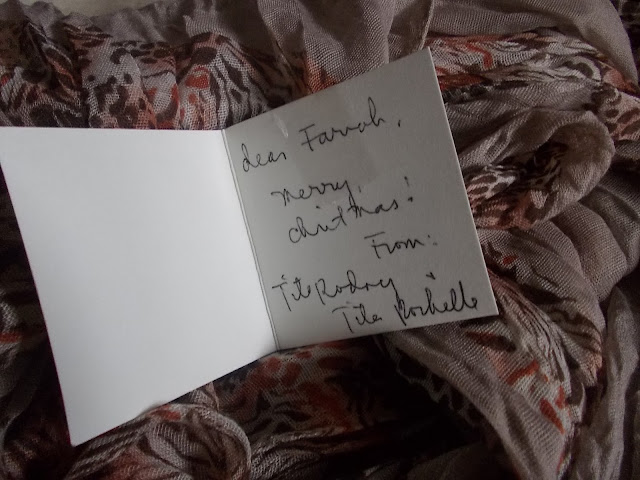 dear Farrah,
merry
christmas!
From:
Tito Rodney &
Tita Rochelle